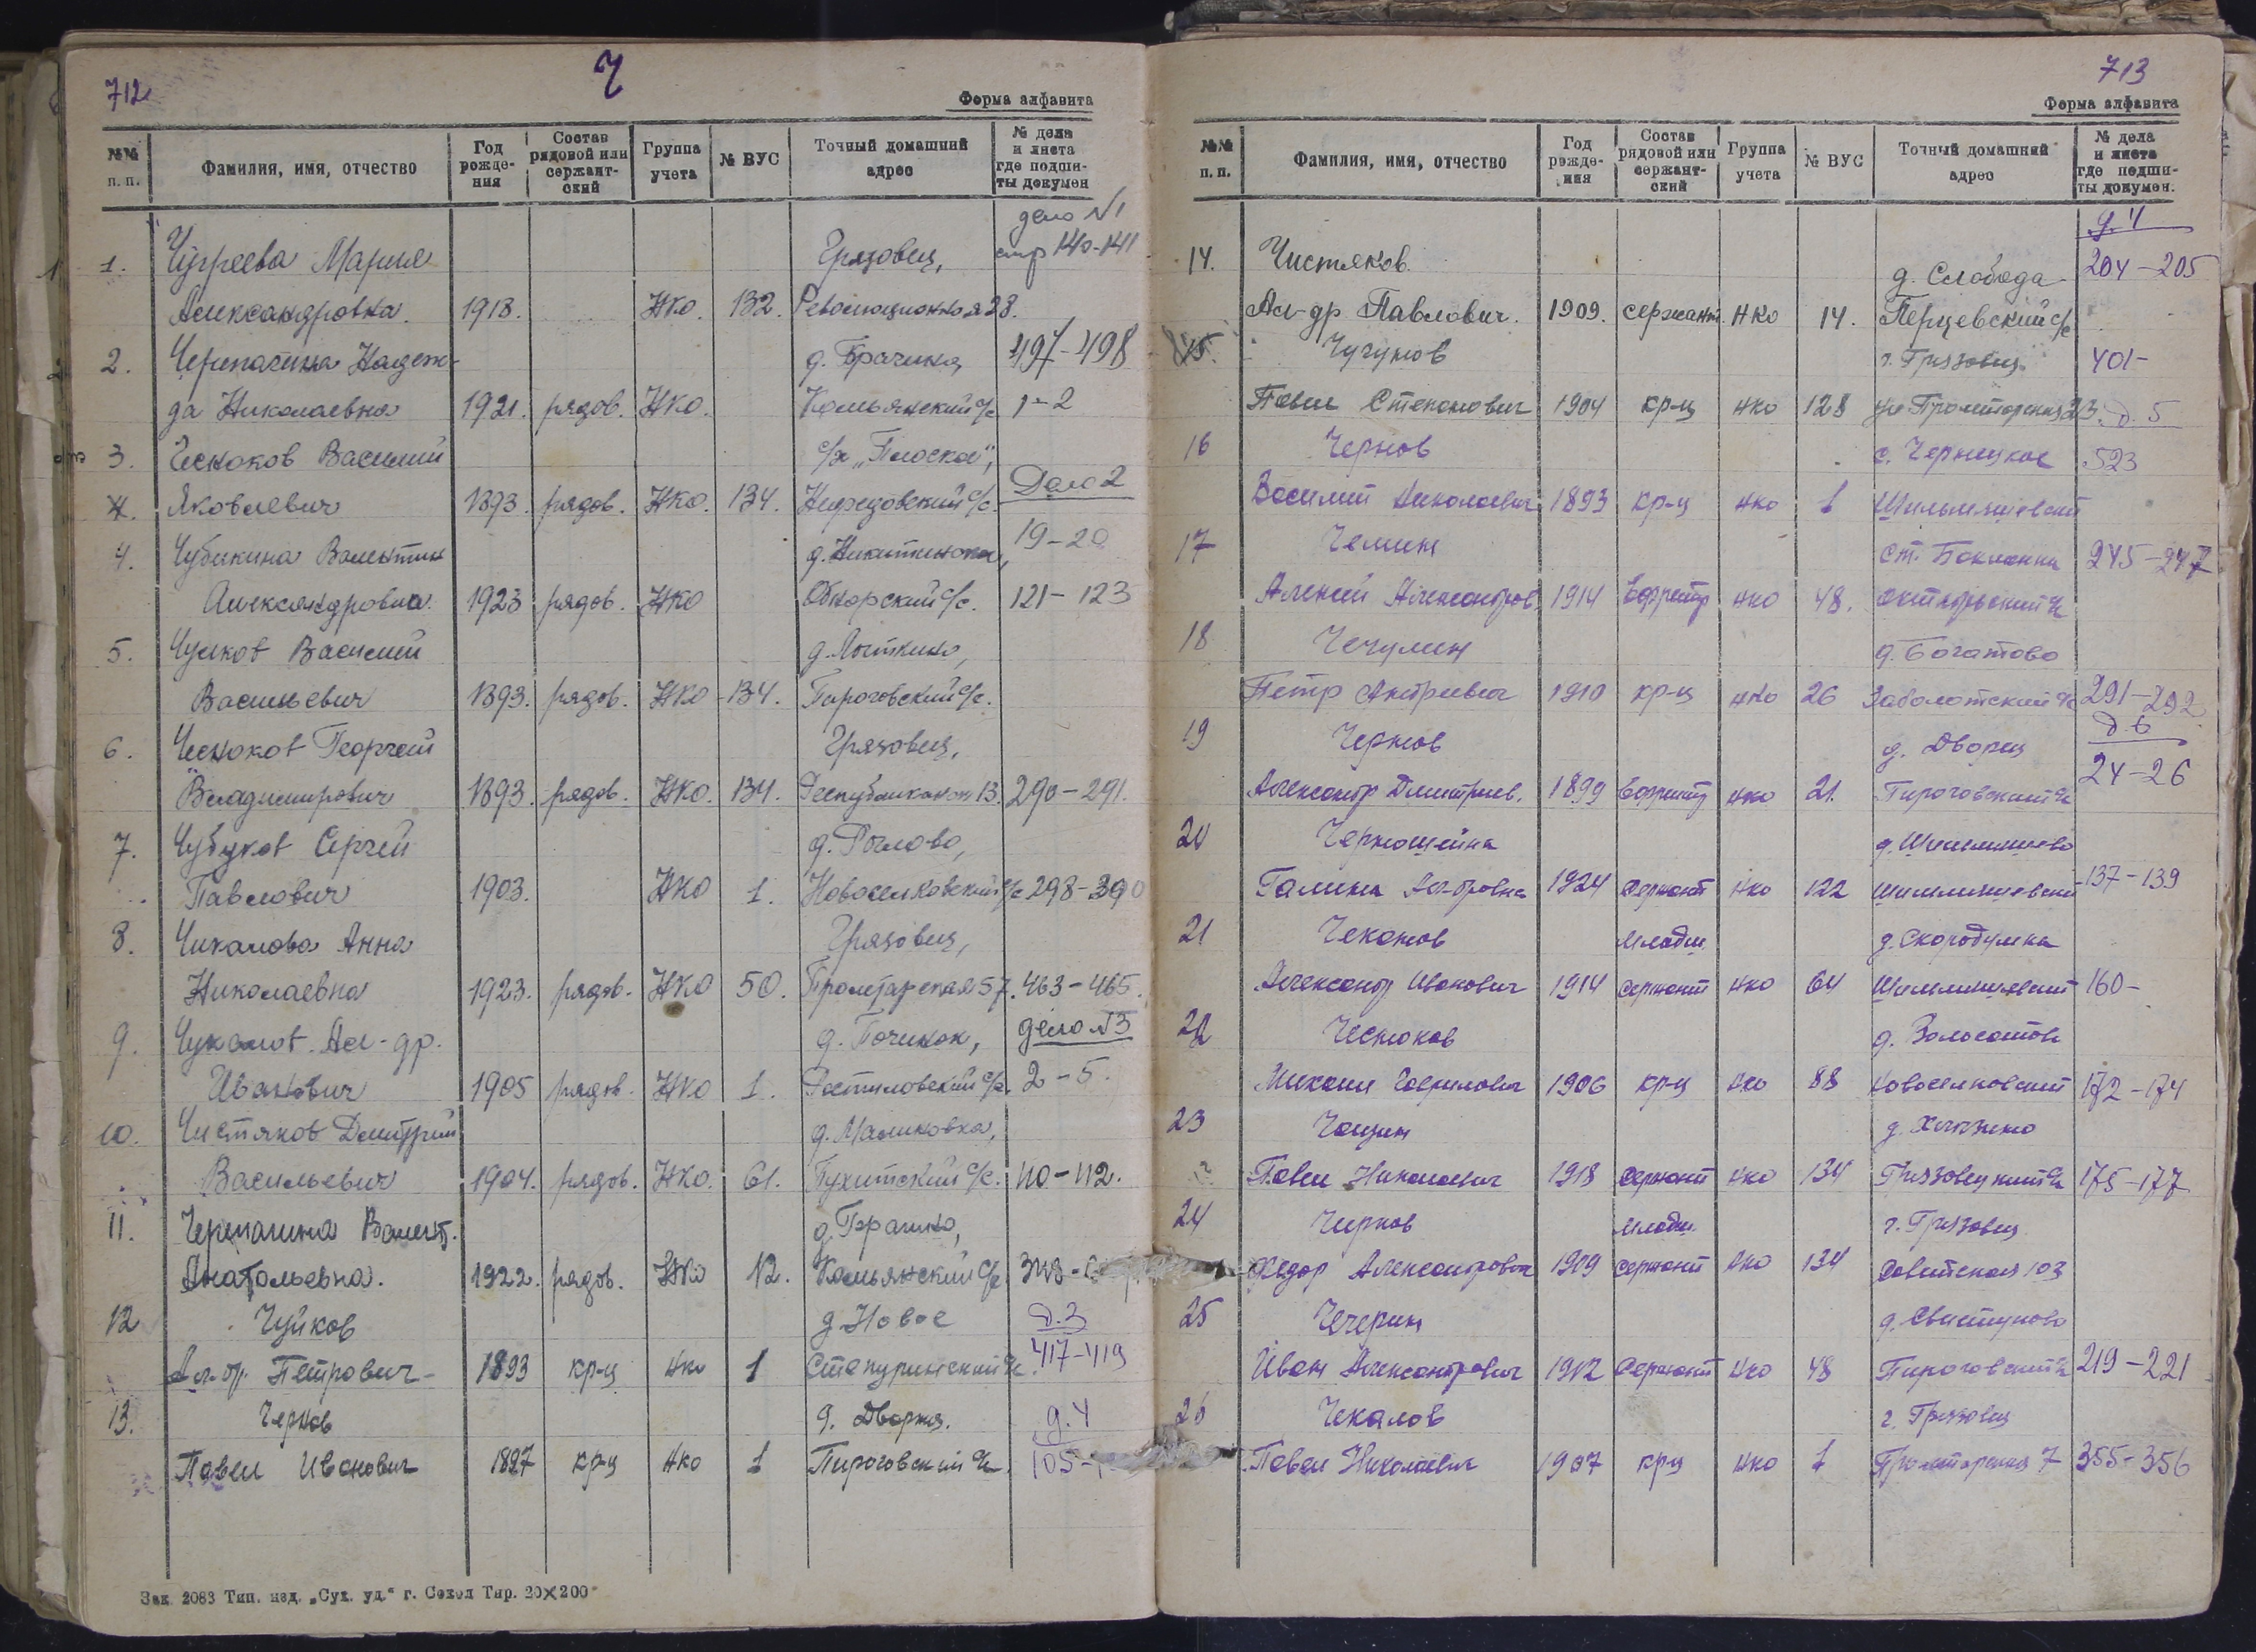 712
Ч
Форма алфавита
№№ п. п. Фамилия, имя, отчество Год рожде-ния Состав рядовой или сержант-ский Группа учета № ВУС Точный домашний адрес № дела и листа где подши-ты докумен
дело №1
1. Чугреева Мария Грязовец, стр 140-141
Александровна. 1918. НКО. 132. Революционная 28.
2. Черепагина Надеж- 497-498
да Николаевна 1921. рядов. НКО. Комьянский с/с 1-2
3. Чесноков Василий с/х „Плоское",
Дело 2
Яковлевич 1893. рядов. НКО. 134. Нефедовский с/с.
19-20
4. Чубикина Валентин д. Никитинская,
Александровна. 1923 рядов. НКО Обнорский с/с. 121-123
5. Чулков Василий д. Лыткино,
Васильевич 1893. рядов. НКО 134. Пироговский с/с.
6. Чесноков Георгий Грязовец,
Владимирович 1893. рядов. НКО. 134. Республиканск 13. 290-291.
7. Чубуков Сергей д. Рослово,
Павлович 1903. НКО 1. Новоселковский с/с 298-300
8. Чикалова Анна Грязовец,
Николаевна 1923. рядов. НКО 50. Пролетарская 57. 463-465.
9. Чукалов Ал-др. д. Починок, дело №3
Иванович 1905 рядов. НКО 1. Ростиловский с/с. 2-5.
10. Чистяков Дмитрий д. Малиновка,
Васильевич 1904. рядов. НКО. 61. Пухитский с/с. 110-112.
11. Черепагина Валент.
Анатольевна. 1922. рядов. НКО 12. Комьянский с/с
12 Чуйков д. Новое д.3
Ал-др. Петрович 1893 кр-ц нко 1 Степуринский с/с. 417-419
13. Чернов д. Дворец. д.4
Павел Иванович 1897 кр-ц нко 1 Пироговский с/с 105-
Зак. 2083 Тип. изд. „Сух. уд." г. Сокол Тир. 20×200
713
Форма алфавита
№№ п. п. Фамилия, имя, отчество Год рожде-ния Состав рядовой или сержант-ский Группа учета № ВУС Точный домашний адрес № дела и листа где подши-ты докумен.
д.4
14. Чистяков. д. Слобода 204-205
Ал-др Павлович. 1909. сержант НКО 14. Перцевский с/с
15. Чугунов г. Грязовец 401-
Павел Степанович 1904 кр-ц нко 128 ул Пролетарская 23. д. 5
16 Чернов с. Чернецкое 523
Василий Николаевич 1893 кр-ц нко 1
17 Чемин ст. Бакланка 245-247
Алексей Александров 1914 Ефрейтор нко 48. Октябрьский с/с
18 Чечулин д. Богатово
Петр Андреевич 1910 кр-ц нко 26 Заболотский с/с 291-292
д.6
19 Чернов д. Дворец
Александр Дмитриев. 1899 Ефрейтор нко 21. Пироговский с/с 24-26
20 Черношейна
Галина Ал-дровна 1924 сержант нко 122 137-139
21 Чеканов младш. д. Скородумка
Александр Иванович 1914 сержант нко 64 160-
22 Чесноков
Михаил Гаврилович 1906 кр-ц нко 88 Новоселковский 172-174
23 Чащин
Павел Николаевич 1918 сержант нко 134 Грязовецкий с/с 175-177
24 Чирков младш. г. Грязовец
Федор Александрович 1909 сержант нко 134 Советская 103
25 Чечерин д. Свистуново
Иван Александрович 1912 Сержант нко 48 Пироговский с/с 219-221
26 Чекалов г. Грязовец
Павел Николаевич 1907 кр-ц нко 1 Пролетарская 7 355-356